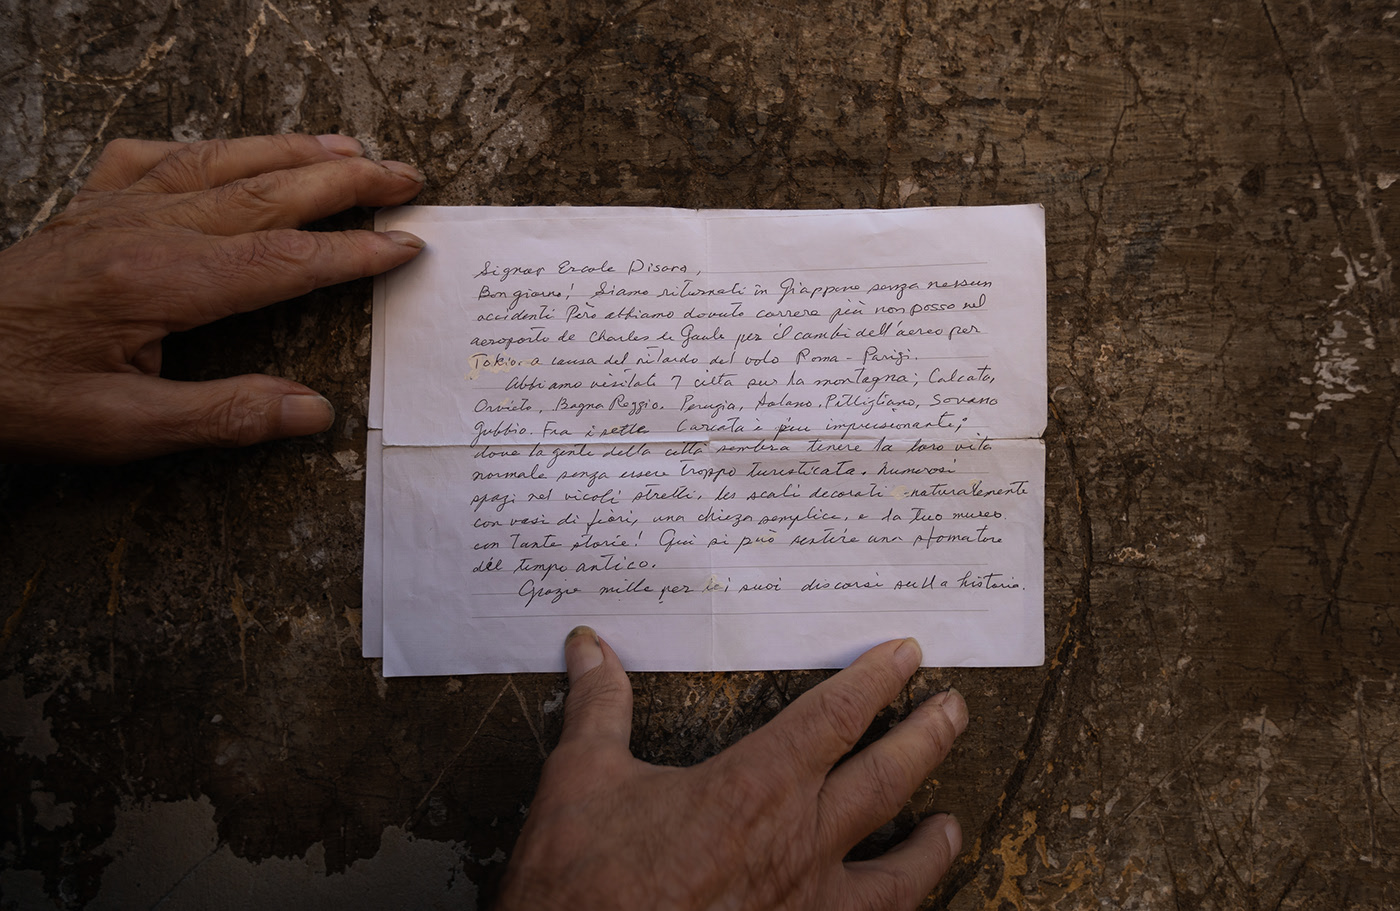 Signor Ercole Disora,
Bon giorno! Siamo riturnati in Giappone senza nessun
accidenti Però abbiamo dovuto correre più non posso nel
aeroporto de Charles de Gaule per il cambi dell'aereo per
Tokio. a causa del ritardo del volo Roma - Parigi.
Abbiamo visitati 7 citta sur la montagna; Calcata,
Orvieto, Bagna Reggio. Perugia, Pittigliano, Sovano
Gubbio. Fra i sette Carcata è piu imprecionante;
dove la gente della citta sembra tenere la loro vita
normale senza essere troppo turisticata. Numerosi
spazi nel vicoli stretti, les scali decorati naturalemente
con vasi di fiori, una chieza semplice, e la tuo museo
con tante storie! Qui si può sentire una sfomatore
del tempo antico.
Grazie mille per lei suoi discorsi sulla historia.